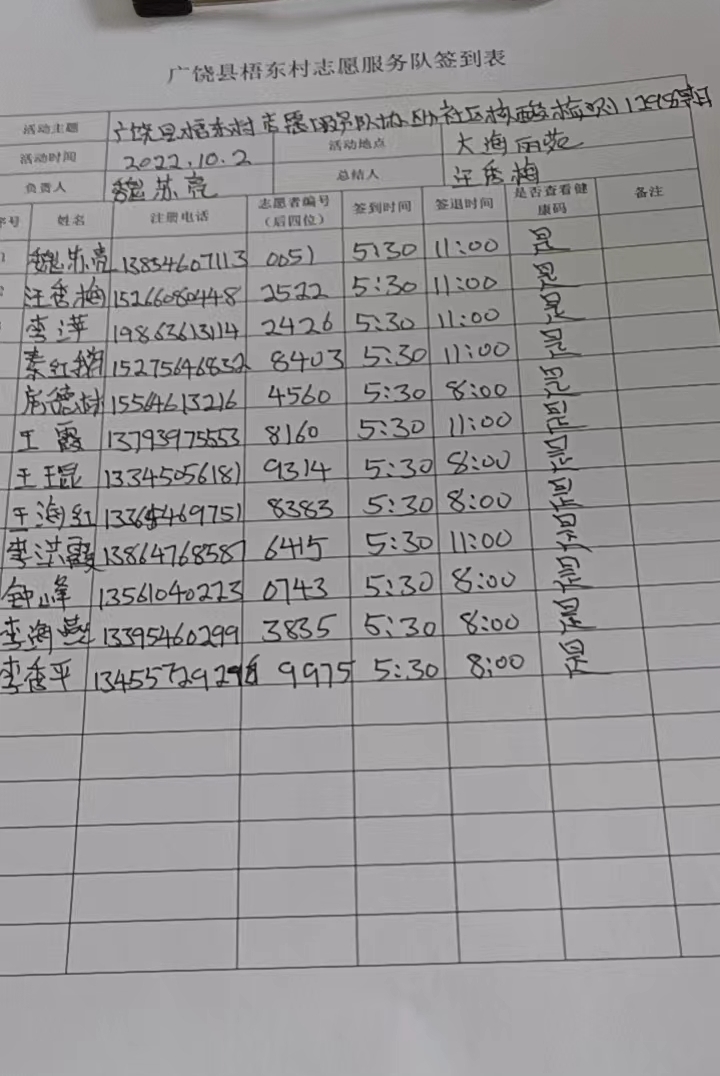 广饶县梧东村志愿服务队签到表
活动主题 广饶县梧东村志愿服务队协助社区核酸检测
活动时间 2022.10.2 活动地点 大海丽苑
负责人 魏苏亮 总结人 汪秀梅
序号 姓名 注册电话 志愿者编号（后四位） 签到时间 签退时间 是否查看健康码 备注
魏苏亮 13854607113 0051 5:30 11:00 是
汪秀梅 15266080448 2522 5:30 11:00 是
李萍 19863613114 2426 5:30 11:00 是
秦红 15275646832 8403 5:30 11:00 是
德 15564613216 4560 5:30 8:00 是
王霞 13793975553 8160 5:30 11:00 是
王琨 13345056181 9314 5:30 8:00 是
王海红 9751 8383 5:30 8:00 是
李洪霞 13864768587 6415 5:30 11:00 是
钟峰 13561040223 0743 5:30 8:00 是
李海燕 13395460299 3835 5:30 8:00 是
李秀平 13455729 9975 5:30 8:00 是